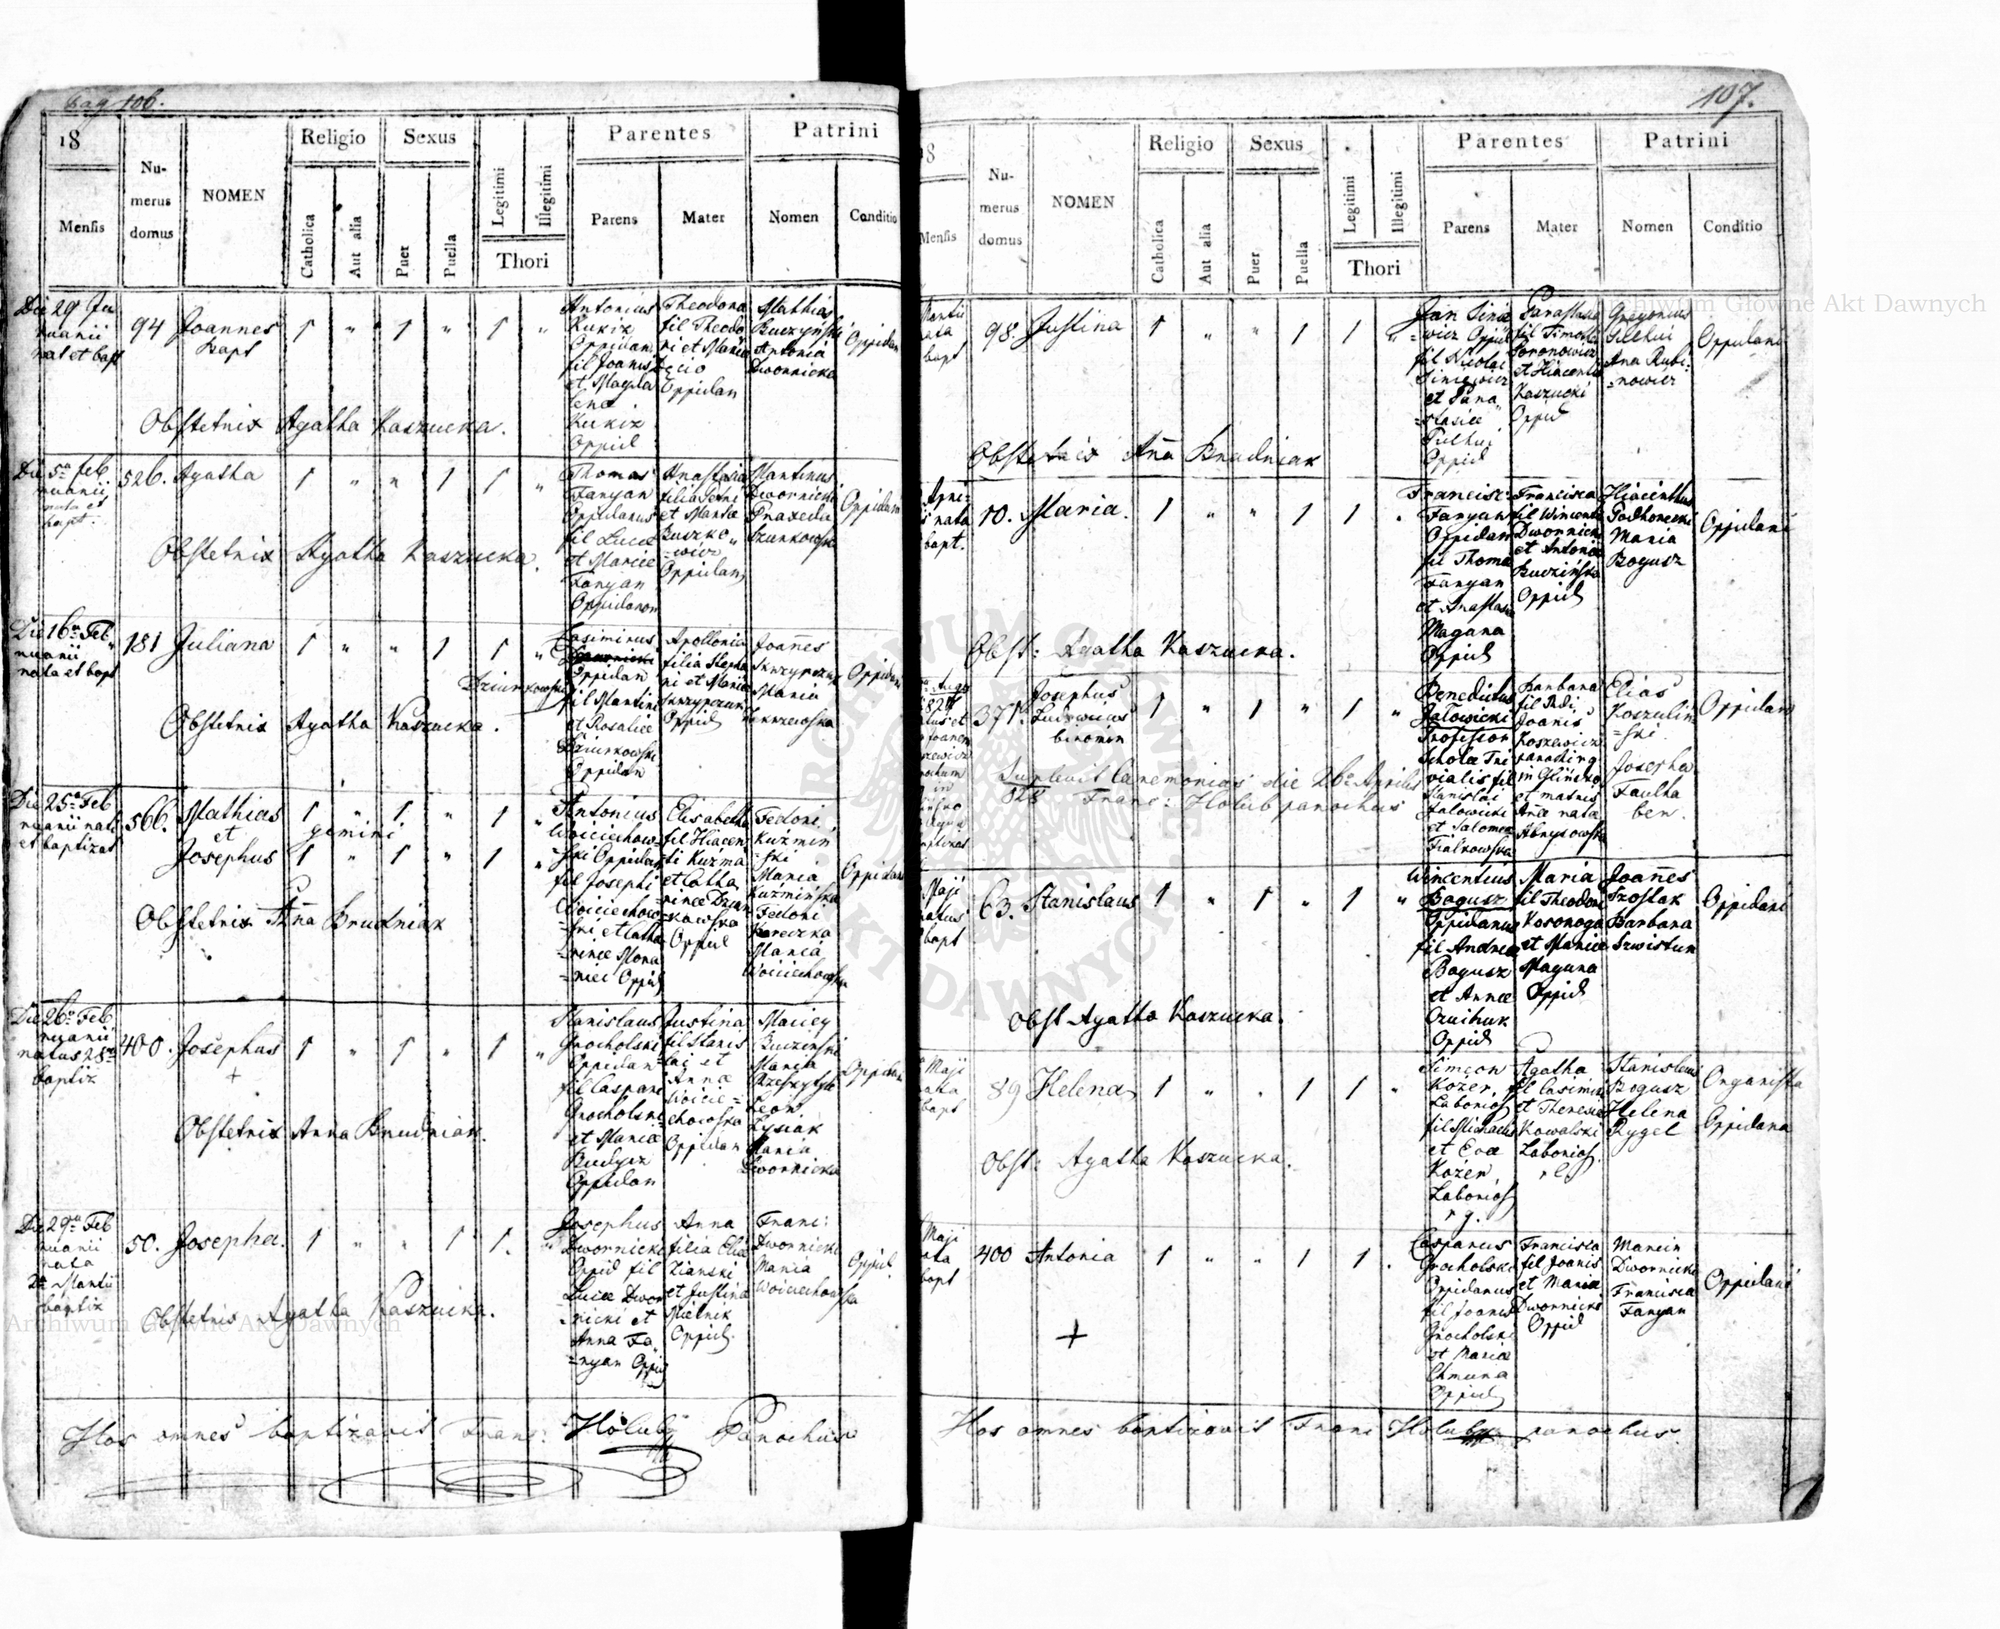 Pag 106.
18
Mensis
Nu-
merus
domus
NOMEN
Religio
Catholica
Aut alia
Sexus
Puer
Puella
Legitimi
Illegitimi
Thori
Parentes
Parens
Mater
Patrini
Nomen
Conditio
Die 29 Ja
nuarii
nat et bapt
94
Joannes
bapt
1 " 1 " 1 "
Antonius
Kukiz
Oppidan
fil Joanis
et Magda
lena
Kukiz
Oppid
Theodora
fil Theodo
ri et Maria
Oppidan
Mathias
Buczyński
Antonia
Dwornicka
Oppidan
Obstetrix Agatha Kaszucka.
Die 5a feb
ruarii
nata et
bapt.
526.
Agatha
1 " " 1 1 "
Thomas
Fanyan
Oppidanus
fil Lucae
et Mariae
Fanyan
Oppidanor
Anastasia
filia Petri
et Mariae
Buszko
=wicz
Oppidan
Martinus
Dwornicki
Praxeda
Szunkowska
Oppidani
Obstetrix Agatha Kaszucka.
Die 16a Feb
ruarii
nata et bapt
181
Juliana
1 " " 1 1 "
Casimirus
Dziurkowski
Oppidan
fil Martini
et Rosaliae
Dziurkowski
Oppidan
Apollonia
filia Stepha
ni et Mariae
Skrzypczuk
Oppid
Joannes
Skrzypczuk
Maria
Oppidani
Obstetrix Agatha Kaszucka.
Die 25a Feb
ruarii nati
et baptizat
566.
Mathias
et
Josephus
gemini
1 " 1 " 1 "
1 " 1 " 1 "
Antonius
Woiciechow=
ski Oppidan
fil Josephi
Woiciechow
=ski et Catha
rinae Mona
Oppid
Elisabetha
fil Hiacen
ti Kuzma
et Catha
rinae Dziur
kowska
Oppid
Fedoni
Kuźmin
ski
Maria
Kuźmińska
Fedoni
Kareczka
Maria
Woiciechowska
Oppidani
Obstetrix Anna Brudniak
Die 26a Feb
ruarii
natus 28a
baptiz
400.
Josephus
+
1 " 1 " 1 "
Stanislaus
Grocholski
Oppidan
fil Caspari
Grocholski
et Mariae
Oppidan
Justina
fil Stanis
lai et
Anna
Woicie=
chowska
Oppidan
Maciey
Buczinski
Maria
Leon
Łysiak
Maria
Dwornicka
Oppidani
Obstetrix Anna Brudniak.
Die 29a Feb
ruarii
nata
2a Martii
baptiz
50.
Josepha.
1 " " 1 1. "
Josephus
Dwornicki
Oppid fil
Lucae Dwor
nicki et
Anna Fa
=nyan Oppid
Anna
filia Elia
Zianski
et Justina
Mielnik
Oppid.
Franc:
Dwornicki
Maria
Woiciechows
ka
Oppid.
Obstetrix Agatha Kaszucka.
Hos omnes baptizavit Franc: Holuby Parochus
107.
18
Mensis
Nu-
merus
domus
NOMEN
Religio
Catholica
Aut alia
Sexus
Puer
Puella
Legitimi
Illegitimi
Thori
Parentes
Parens
Mater
Patrini
Nomen
Conditio
Martii
nata
bapt
98.
Justina
1 " " 1 1 "
Jan Sinie
wicz Oppid
fil Nicolai
Siniewicz
et Para
stasiae
Oppid
Parastasia
fil Timothei
Kaszucki
Oppid
Gregorius
Ana Rubi
=nowicz
Oppidani
Obstetrix Ana Brudniak
Apri=
nata
bapt.
10.
Maria.
1 " " 1 1 .
Francisc:
Fanyan
Oppidan
fil Thoma
Fanyan
et Anastasia
Magana
Oppid
Francisca
fil Wincenti
Dwornicki
et Antonia
Buczińska
Oppid
Hiacinthus
Podhorecki
Maria
Bogusz
Oppidani
Obst: Agatha Kaszucka.
371.
Josephus
Ludovicus
binomin
1 " 1 " 1 "
Benedictus
Jałowicki
Professor
Scholae Tri
vialis fil
Stanislai
Jałowicki
et Salomea
Fialkowska
Barbara
Joanis
Koszewicz
parochi gr
in Glińsko
et matris
Annae nata
Elias
Koszulin
=ski.
Josepha
Oppidani
Suplevit Caeremonias die 26a Aprilis
828 Franc: Holub parochus
Maji
natus
bapt
63.
Stanislaus
1 " 1 " 1 "
Wincentius
Bogusz
Oppidanus
fil Andreae
Bogusz
et Annae
Oppid
Maria
fil Theodori
Kosonoga
et Mariae
Maguna
Oppid
Joannes
Szostak
Barbara
Szwistun
Oppidani
Obst Agatha Kaszucka.
Maji
nata
bapt
89
Helena
1 " . 1 1 "
Simeon
Kożen,
Laborios
fil Michaelis
et Eva
Kożen,
Laborios
r g.
Agatha
fil Casimiri
et Theresia
Kowalski
Laborios.
r l
Stanislaus
Bogusz
Helena
Rygel
Organista
Oppidana
Obst: Agatha Kaszucka.
Maji
nata
bapt
400
Antonia
1 " " 1 1 .
Casparus
Grocholski
Oppidanus
fil Joanis
Grocholski
et Mariae
Chmura
Oppid
Francisca
fil Joanis
et Mariae
Dwornicki
Oppid
Marcin
Dwornicki
Francisca
Fanyan
Oppidani
+
Hos omnes baptizavit Franc Holuby parochus.
Archiwum Główne Akt Dawnych
Archiwum Główne Akt Dawnych
ARCHIWUM GŁÓWNE AKT DAWNYCH